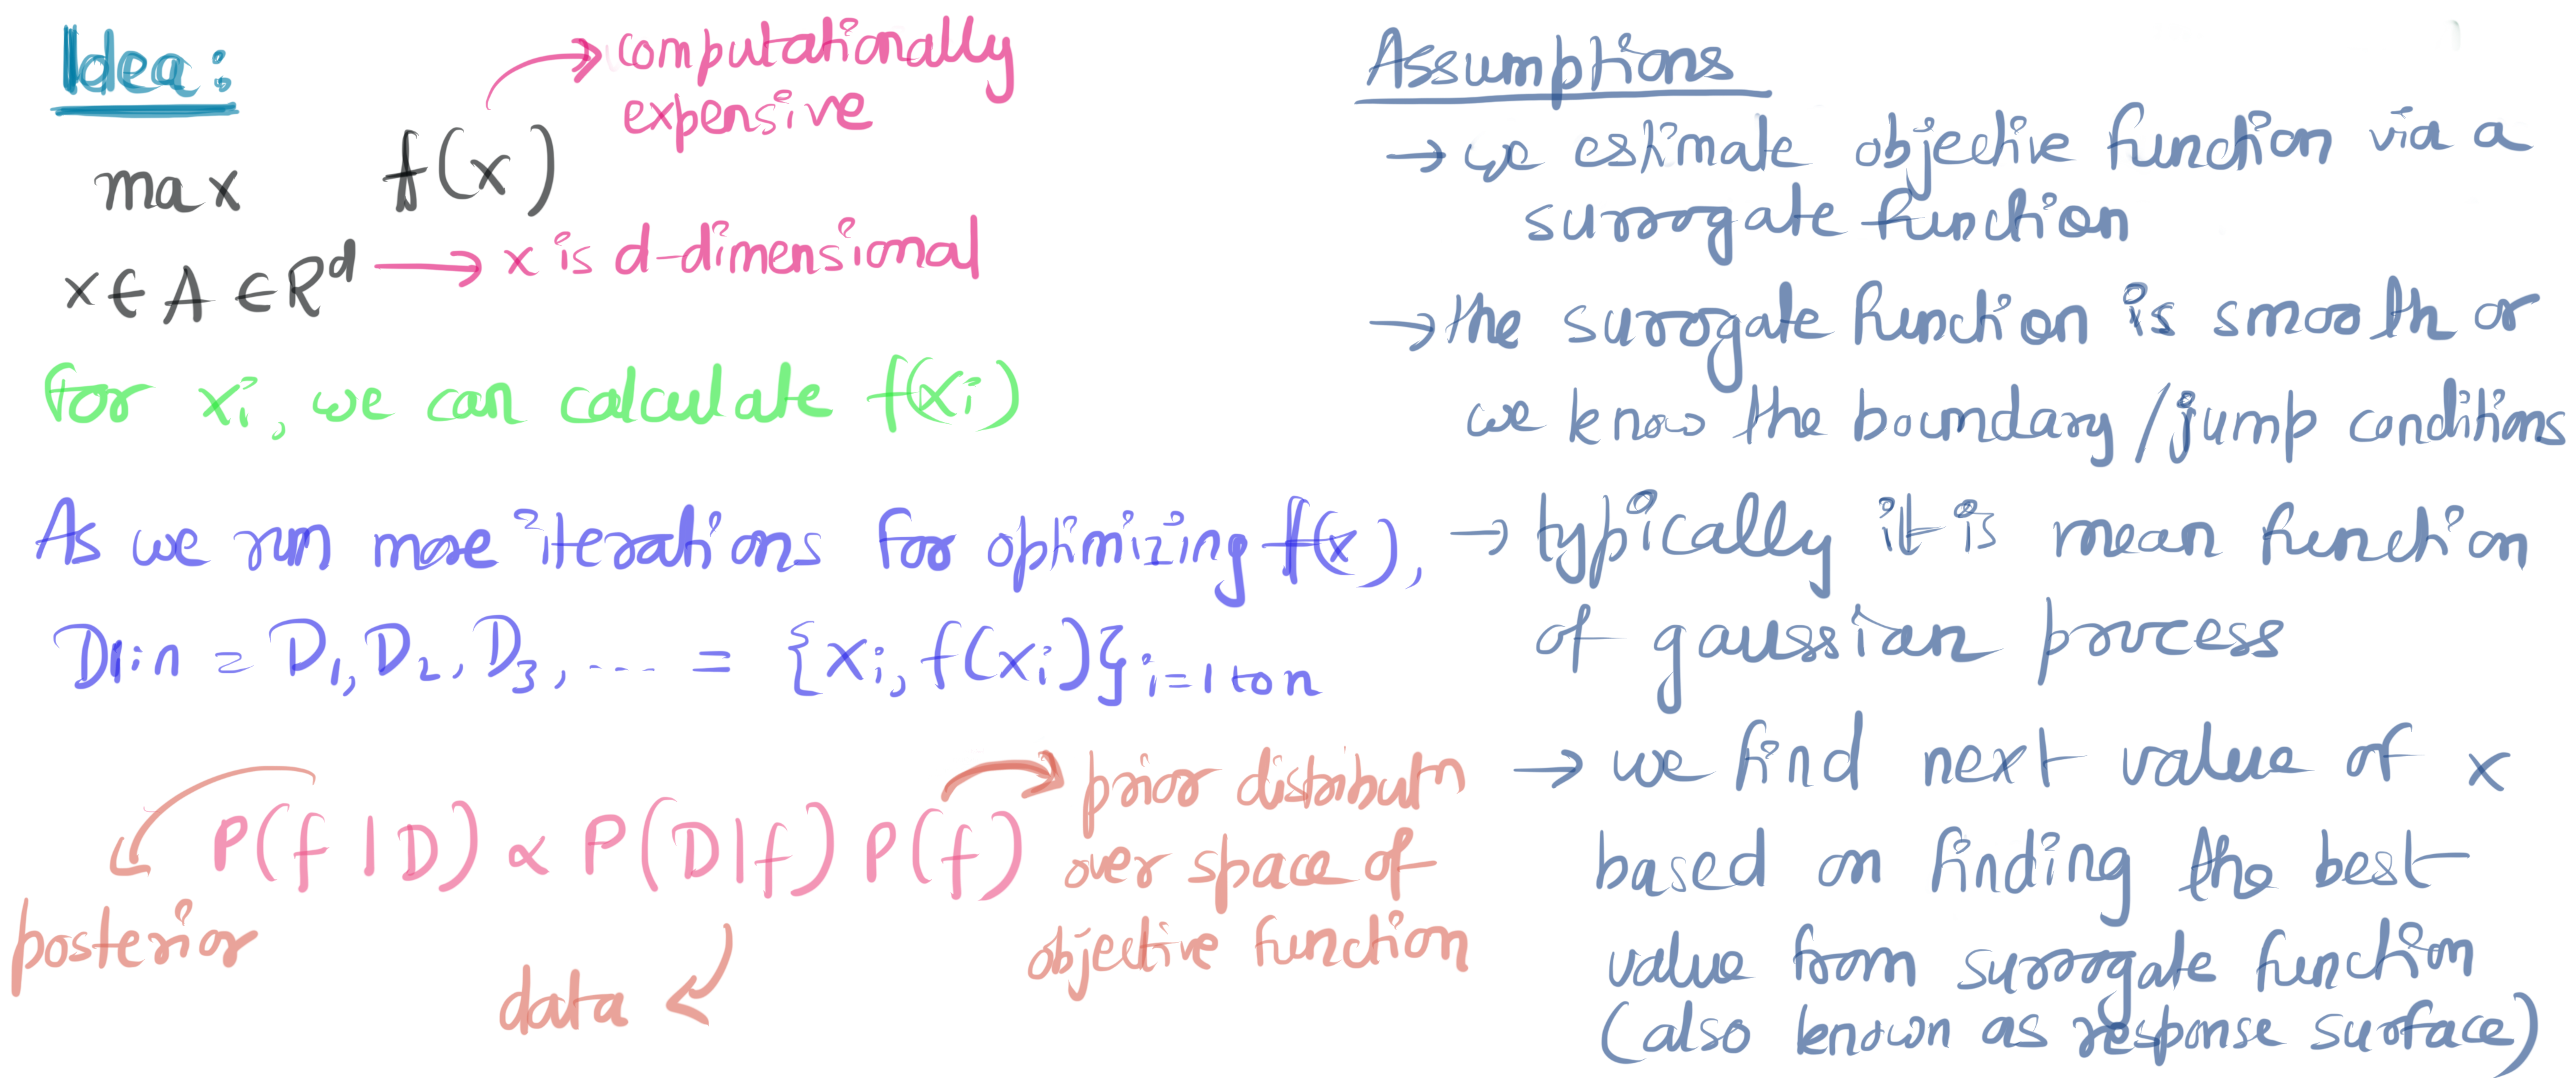 Idea:
computationally
expensive
max f(x)
x ∈ A ∈ R^d → x is d-dimensional
for xi, we can calculate f(xi)
As we run more iterations for optimizing f(x),
D1:n = D1, D2, D3, .... = {xi, f(xi)} i=1 to n
P(f|D) ∝ P(D|f) P(f)
posterior
data
prior distributn
over space of
objective function
Assumptions
→ we estimate objective function via a
surrogate function
→ the surrogate function is smooth or
we know the boundary/jump conditions
→ typically it is mean function
of gaussian process
→ we find next value of x
based on finding the best
value from surrogate function
(also known as response surface)